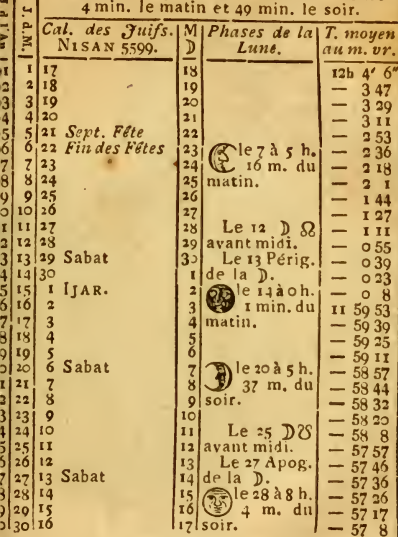 4 min. le matin et 49 min. le soir.
J. d. M. Cal. des Juifs. M Phases de la T. moyen
NISAN 5599. ☽ Lune. au m. vr.
1 17 18 12h 4' 6"
2 18 19 — 3 47
3 19 20 — 3 29
4 20 21 — 3 11
5 21 Sept. Fête 22 — 2 53
6 22 Fin des Fêtes 23 le 7 à 5 h. — 2 36
7 23 24 16 m. du — 2 18
8 24 25 matin. — 2 1
9 25 26 — 1 44
10 26 27 — 1 27
11 27 28 Le 12 ☽ ☊ — 1 11
12 28 29 avant midi. — 0 55
13 29 Sabat 30 Le 13 Périg. — 0 39
14 30 1 de la ☽. — 0 23
15 1 IJAR. 2 le 14 à 0 h. — 0 8
16 2 3 1 min. du 11 59 53
17 3 4 matin. — 59 39
18 4 5 — 59 25
19 5 6 — 59 11
20 6 Sabat 7 le 20 à 5 h. — 58 57
21 7 8 37 m. du — 58 44
22 8 9 soir. — 58 32
23 9 10 — 58 20
24 10 11 Le 25 ☽ ☋ — 58 8
25 11 12 avant midi. — 57 57
26 12 13 Le 27 Apog. — 57 46
27 13 Sabat 14 de la ☽. — 57 36
28 14 15 le 28 à 8 h. — 57 26
29 15 16 4 m. du — 57 17
30 16 17 soir. — 57 8